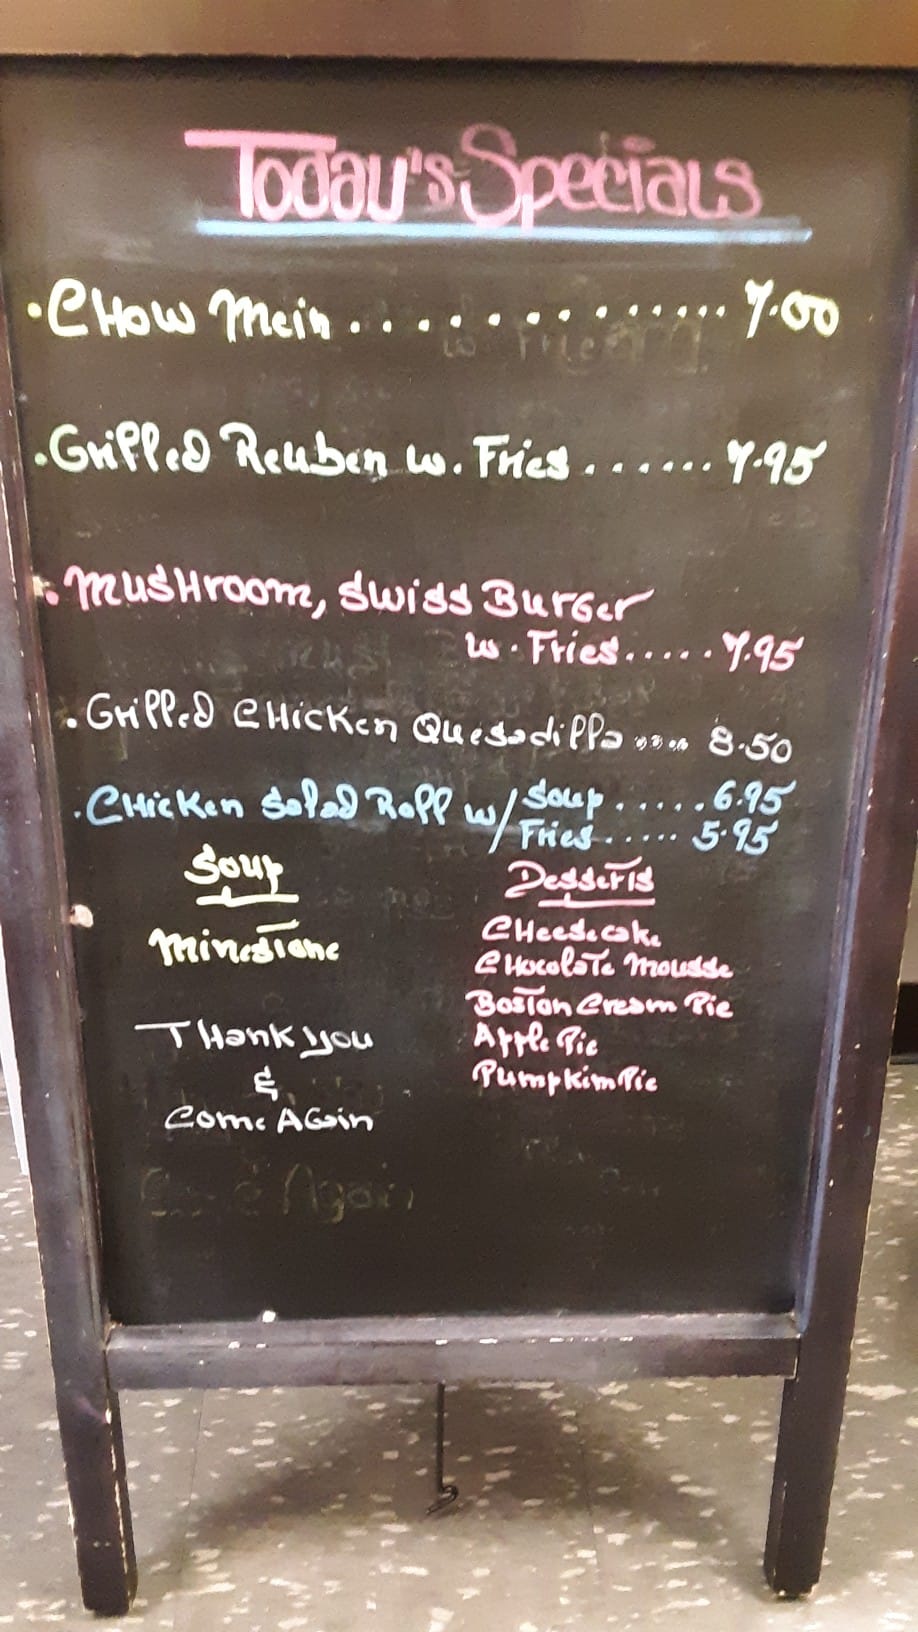 Today's Specials
. CHow Mein .............. 7.00
. Grilled Reuben w. Fries ....... 7.95
. MUSHroom, Swiss Burger
w. Fries ..... 7.95
. Grilled CHicken Quesadilla .... 8.50
. CHicken Salad Roll w/ Soup ..... 6.95
Fries ..... 5.95
Soup
Minestone
Desserts
CHeesecake
CHocolate Mousse
Boston Cream Pie
Apple Pie
Pumpkim Pie
THank you
&
Come AGain
Come Again